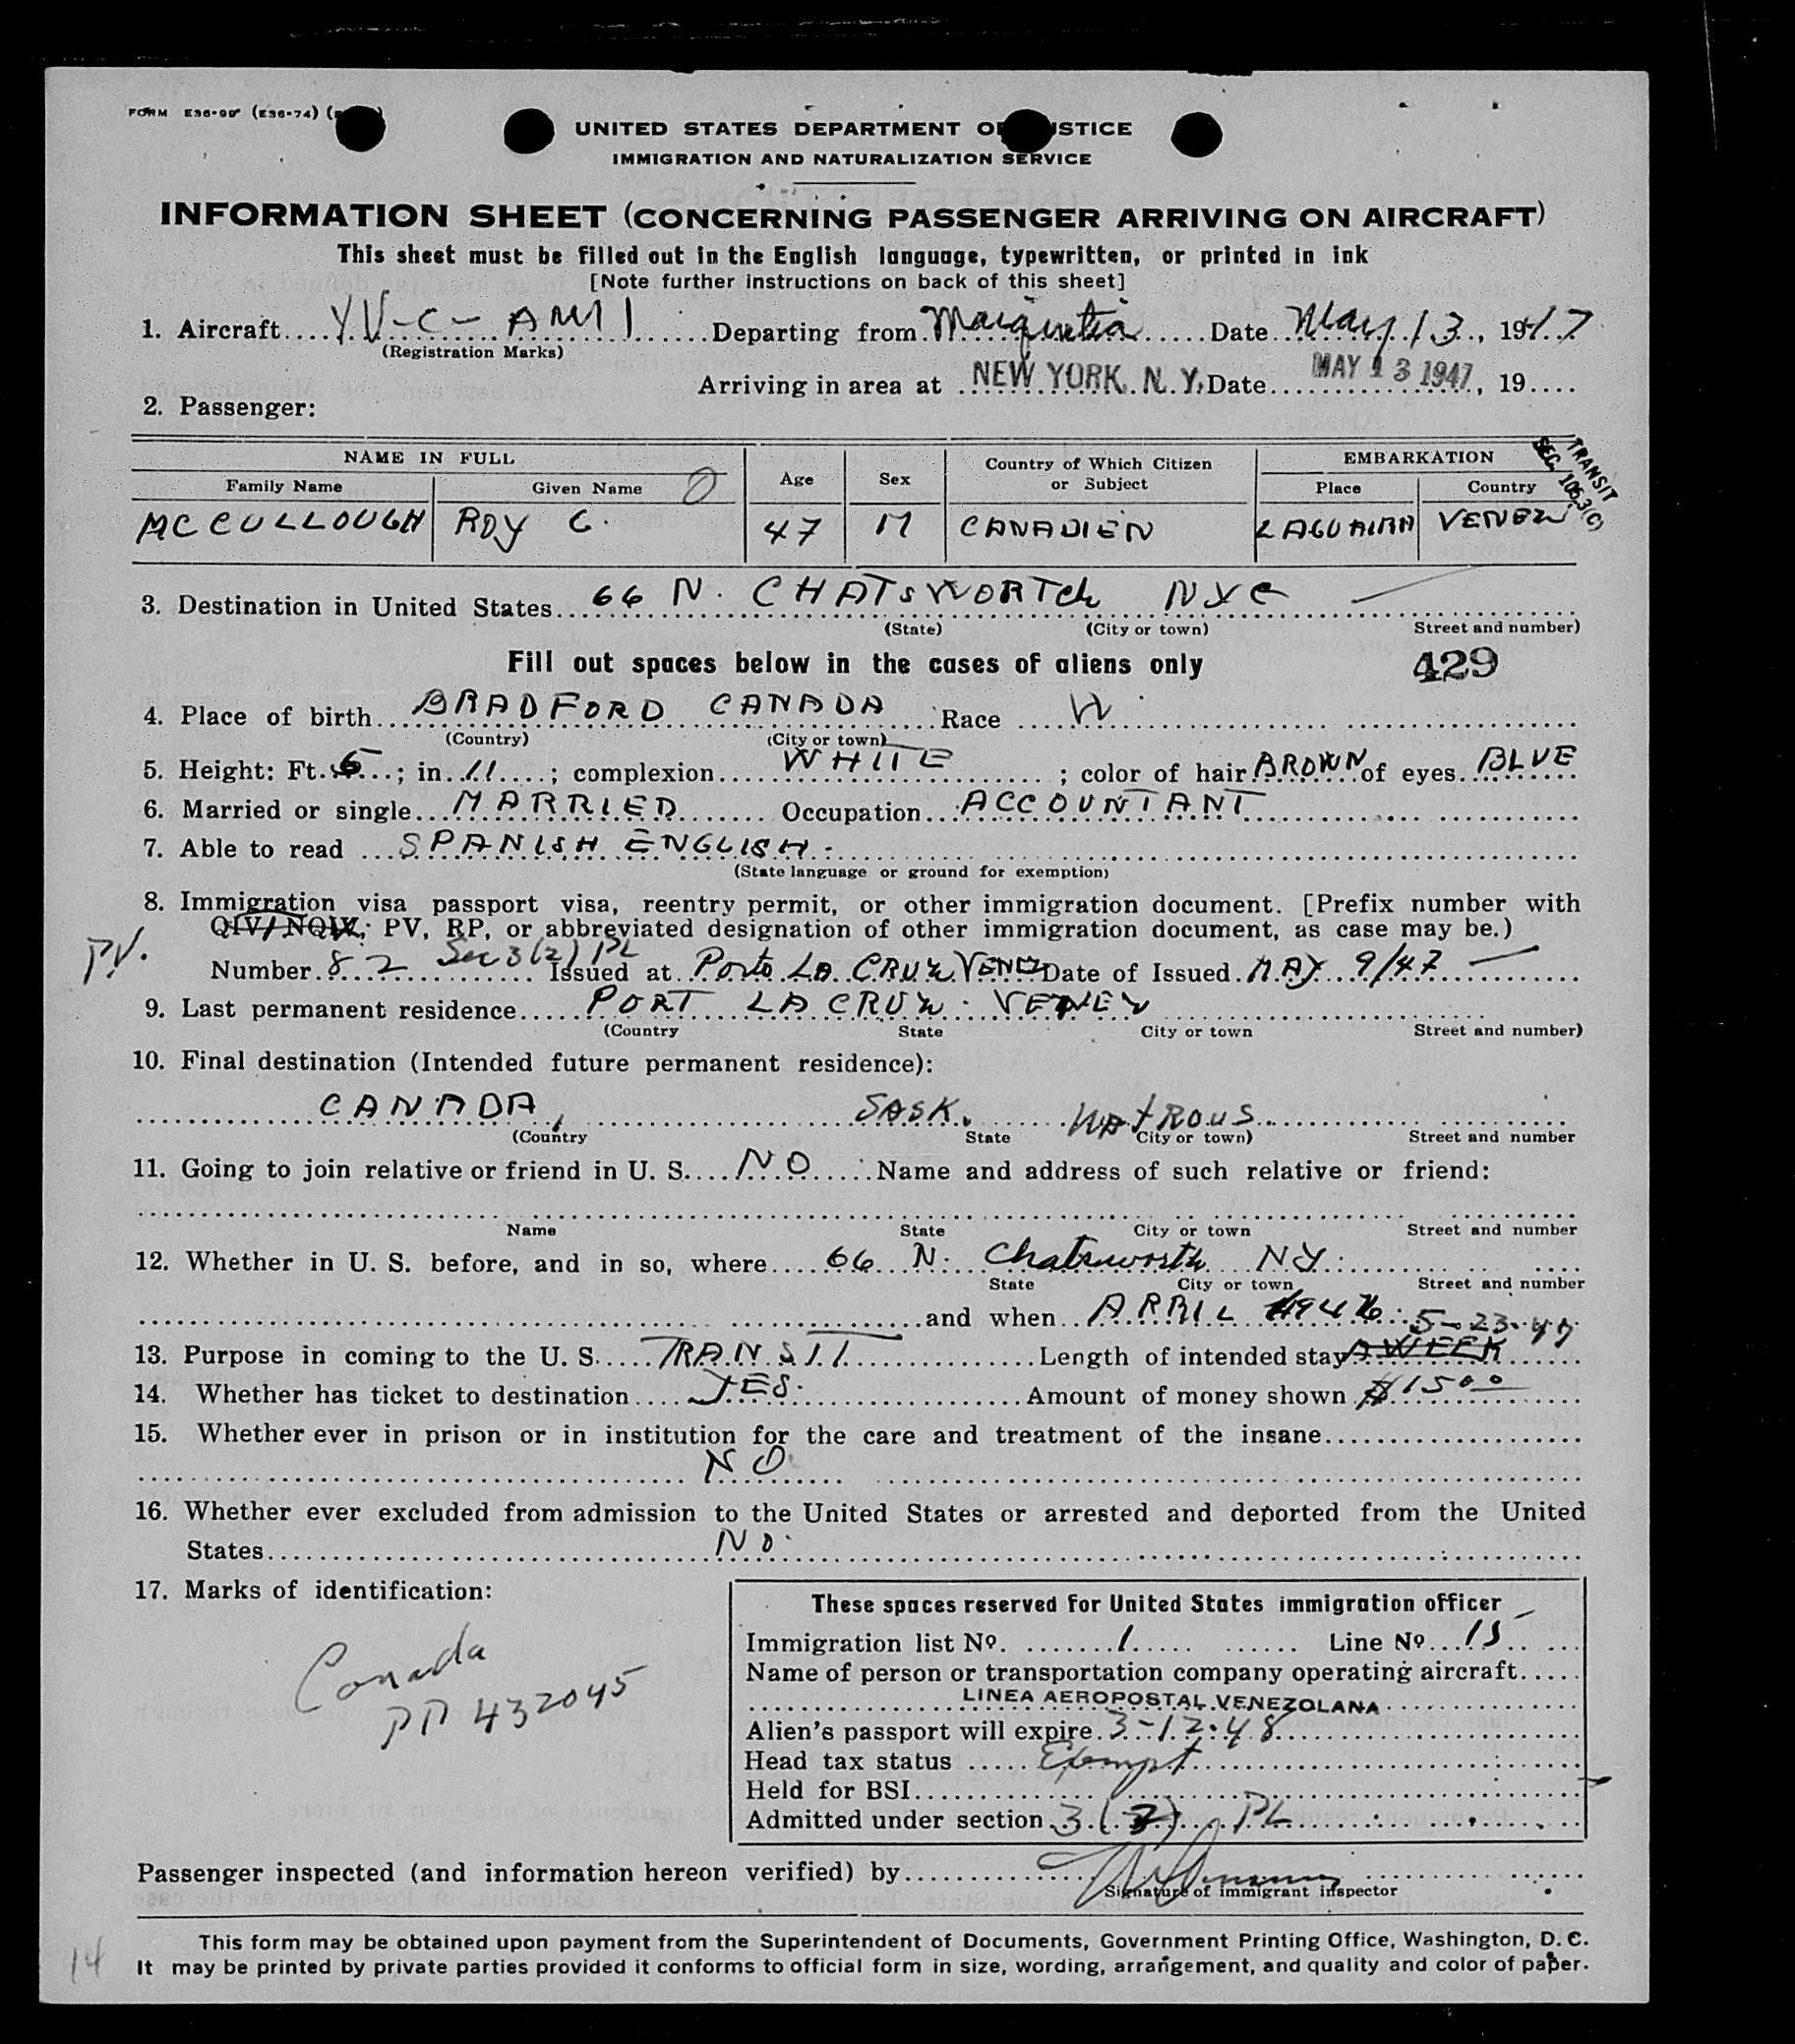 FORM E36-99 (E36-74)
UNITED STATES DEPARTMENT OF JUSTICE
IMMIGRATION AND NATURALIZATION SERVICE
INFORMATION SHEET (CONCERNING PASSENGER ARRIVING ON AIRCRAFT)
This sheet must be filled out in the English language, typewritten, or printed in ink
[Note further instructions on back of this sheet]
1. Aircraft YV-C-AMI Departing from Maiquetia Date May 13, 1947
(Registration Marks)
Arriving in area at NEW YORK, N. Y. Date MAY 13 1947, 19
2. Passenger:
TRANSIT
SEC. 105.3(C)
NAME IN FULL Age Sex Country of Which Citizen or Subject EMBARKATION
Family Name Given Name Place Country
MCCULLOUGH ROY C. 47 M CANADIEN LAGUAIRA VENEZ
3. Destination in United States 66 N. CHATSWORTH NYC
(State) (City or town) Street and number)
Fill out spaces below in the cases of aliens only 429
4. Place of birth BRADFORD CANADA Race W
(Country) (City or town)
5. Height: Ft. 5; in. 11; complexion WHITE; color of hair BROWN of eyes BLUE
6. Married or single MARRIED Occupation ACCOUNTANT
7. Able to read SPANISH ENGLISH
(State language or ground for exemption)
8. Immigration visa passport visa, reentry permit, or other immigration document. [Prefix number with
QIV/NQIV, PV, RP, or abbreviated designation of other immigration document, as case may be.)
PV. Number 82 Sec 3(2) PL Issued at Porto LA CRUZ VENEZ Date of Issued MAY 9/47
9. Last permanent residence PORT LA CRUZ. VENEZ
(Country State City or town Street and number)
10. Final destination (Intended future permanent residence):
CANADA, SASK. WATROUS
(Country State City or town) Street and number
11. Going to join relative or friend in U. S. NO Name and address of such relative or friend:
Name State City or town Street and number
12. Whether in U. S. before, and in so, where 66 N. Chatsworth NY.
State City or town Street and number
and when APRIL 1946 5-23-47
13. Purpose in coming to the U. S. TRANSIT Length of intended stay A WEEK
14. Whether has ticket to destination YES. Amount of money shown $1500
15. Whether ever in prison or in institution for the care and treatment of the insane
NO
16. Whether ever excluded from admission to the United States or arrested and deported from the United
States NO.
17. Marks of identification:
Canada
PP 432045
These spaces reserved for United States immigration officer
Immigration list No. 1 Line No. 15
Name of person or transportation company operating aircraft
LINEA AEROPOSTAL VENEZOLANA
Alien's passport will expire 3-12-48
Head tax status Exempt
Held for BSI
Admitted under section 3(2) PL
Passenger inspected (and information hereon verified) by
Signature of immigrant inspector
This form may be obtained upon payment from the Superintendent of Documents, Government Printing Office, Washington, D. C.
14 It may be printed by private parties provided it conforms to official form in size, wording, arrangement, and quality and color of paper.